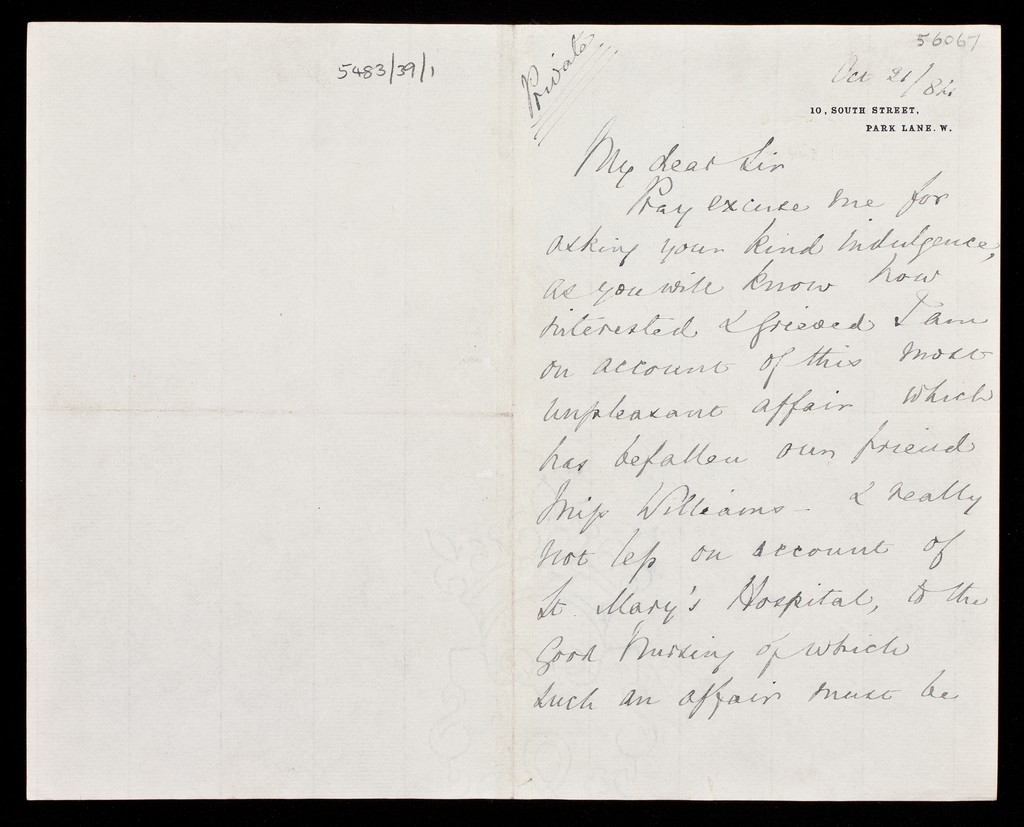 5483/39/1
Private
56067
Oct 21/84
10, SOUTH STREET,
PARK LANE. W.
My dear Sir
Pray excuse me for
asking your kind indulgence,
as you will know how
interested & grieved I am
on account of this most
unpleasant affair which
has befallen our friend
Miss Williams - & really
not less on account of
St. Mary's Hospital, to the
good Nursing of which
such an affair must be